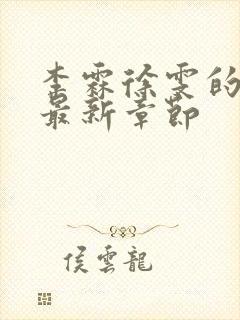 李霖徐雯的
最新章節
侯雲龍